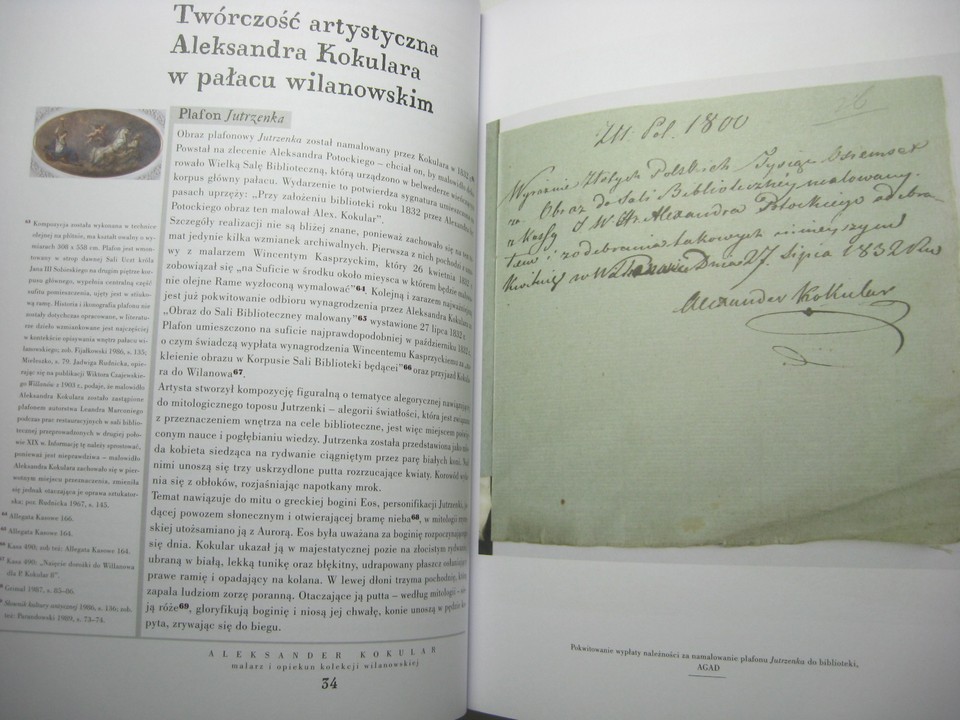 Twórczość artystyczna
Aleksandra Kokulara
w pałacu wilanowskim
Plafon Jutrzenka
Obraz plafonowy Jutrzenka został namalowany przez Kokulara w 1832
Powstał na zlecenie Aleksandra Potockiego – chciał on, by malowidło
rowało Wielką Salę Biblioteczną, którą urządzono w belwederze
korpus główny pałacu. Wydarzenie to potwierdza sygnatura umieszczona
pasach uprzęży: „Przy założeniu biblioteki roku 1832 przez Alexandra
Potockiego obraz ten malował Alex. Kokular”.
Szczegóły realizacji nie są bliżej znane, ponieważ zachowało się na ten
mat jedynie kilka wzmianek archiwalnych. Pierwsza z nich pochodzi
wy z malarzem Wincentym Kasprzyckim, który 26 kwietnia 1832
zobowiązał się „na Suficie w środku około mieysca w którem będzie
nie olejne Rame wyzłoconą wymalować”64. Kolejną i zarazem
jest już pokwitowanie odbioru wynagrodzenia przez Aleksandra Kokulara
„Obraz do Sali Biblioteczney malowany”65 wystawione 27 lipca 1832 r.
Plafon umieszczono na suficie najprawdopodobniej w październiku 1832 r.
o czym świadczą wypłata wynagrodzenia Wincentemu Kasprzyckiemu za
kleienie obrazu w Korpusie Sali Biblioteki będącei”66 oraz przyjazd
ra do Wilanowa67.
Artysta stworzył kompozycję figuralną o tematyce alegorycznej nawiązującej
do mitologicznego toposu Jutrzenki – alegorii światłości, która jest
z przeznaczeniem wnętrza na cele biblioteczne, jest więc miejscem
conym nauce i pogłębianiu wiedzy. Jutrzenka została przedstawiona jako
da kobieta siedząca na rydwanie ciągniętym przez parę białych koni. Nad
nimi unoszą się trzy uskrzydlone putta rozrzucające kwiaty. Korowód
nia się z obłoków, rozjaśniając napotkany mrok.
Temat nawiązuje do mitu o greckiej bogini Eos, personifikacji Jutrzenki,
dzącej powóz słonecznym i otwierającej bramę nieba68, w mitologii
skiej utożsamiano ją z Aurorą. Eos była uważana za boginię rozpoczynającego
się dnia. Kokular ukazał ją w majestatycznej pozie na złocistym rydwanie
ubraną w białą, lekką tunikę oraz błękitny, udrapowany płaszcz
prawe ramię i opadający na kolana. W lewej dłoni trzyma pochodnię,
zapala ludziom zorzę poranną. Otaczające ją putta – według mitologii –
ją róże69, gloryfikują boginię i niosą jej chwałę, konie unoszą w pędzie
pyta, zrywając się do biegu.
63 Kompozycja została wykonana w technice
olejnej na płótnie, ma kształt owalny o wy-
miarach 308 x 558 cm. Plafon jest wmon-
towany w strop dawnej Sali Uczt króla
Jana III Sobieskiego na drugim piętrze kor-
pusu głównego, wypełnia centralną część
sufitu pomieszczenia, ujęty jest w stiuko-
wą ramę. Historia i ikonografia plafonu nie
zostały dotychczas opracowane, w literatu-
rze dzieło wzmiankowane jest najczęściej
w kontekście opisywania wnętrz pałacu wi-
lanowskiego; zob. Fijałkowski 1986, s. 135;
Mieleszko, s. 79. Jadwiga Rudnicka, opie-
rając się na publikacji Wiktora Czajewskie-
go Willanów z 1903 r., podaje, że malowidło
Aleksandra Kokulara zostało zastąpione
plafonem autorstwa Leandra Marconiego
podczas prac restauracyjnych w sali biblio-
tecznej przeprowadzonych w drugiej poło-
wie XIX w. Informację tę należy sprostować,
ponieważ jest nieprawdziwa – malowidło
Aleksandra Kokulara zachowało się w pier-
wotnym miejscu przeznaczenia, zmieniła
się jednak otaczająca je oprawa sztukator-
ska; por. Rudnicka 1967, s. 145.
64 Allegata Kasowe 166.
65 Allegata Kasowe 164.
66 Kasa 490; zob też: Allegata Kasowe 164.
67 Kasa 490: „Najęcie domáki do Willanowa
dla P. Kokular 8”.
68 Grimal 1987, s. 85–86.
69 Słownik kultury antycznej 1986, s. 136; zob.
też: Parandowski 1989, s. 73–74.
ALEKSANDER KOKULAR
malarz i opiekun kolekcji wilanowskiej
34
Złł. Pol. 1800
Wyraźnie Złotych Polskich Tysiąc Osiemset
za Obraz do Sali Biblioteczney malowany.
z Kassy J W Hr. Alexandra Potockiego odebra-
łem i z odebrania takowych ninieyszym
kwituię w Dnia 27 Lipca 1832 Rku
Alexander Kokular
Pokwitowanie wypłaty należności za namalowanie plafonu Jutrzenka do biblioteki,
AGAD